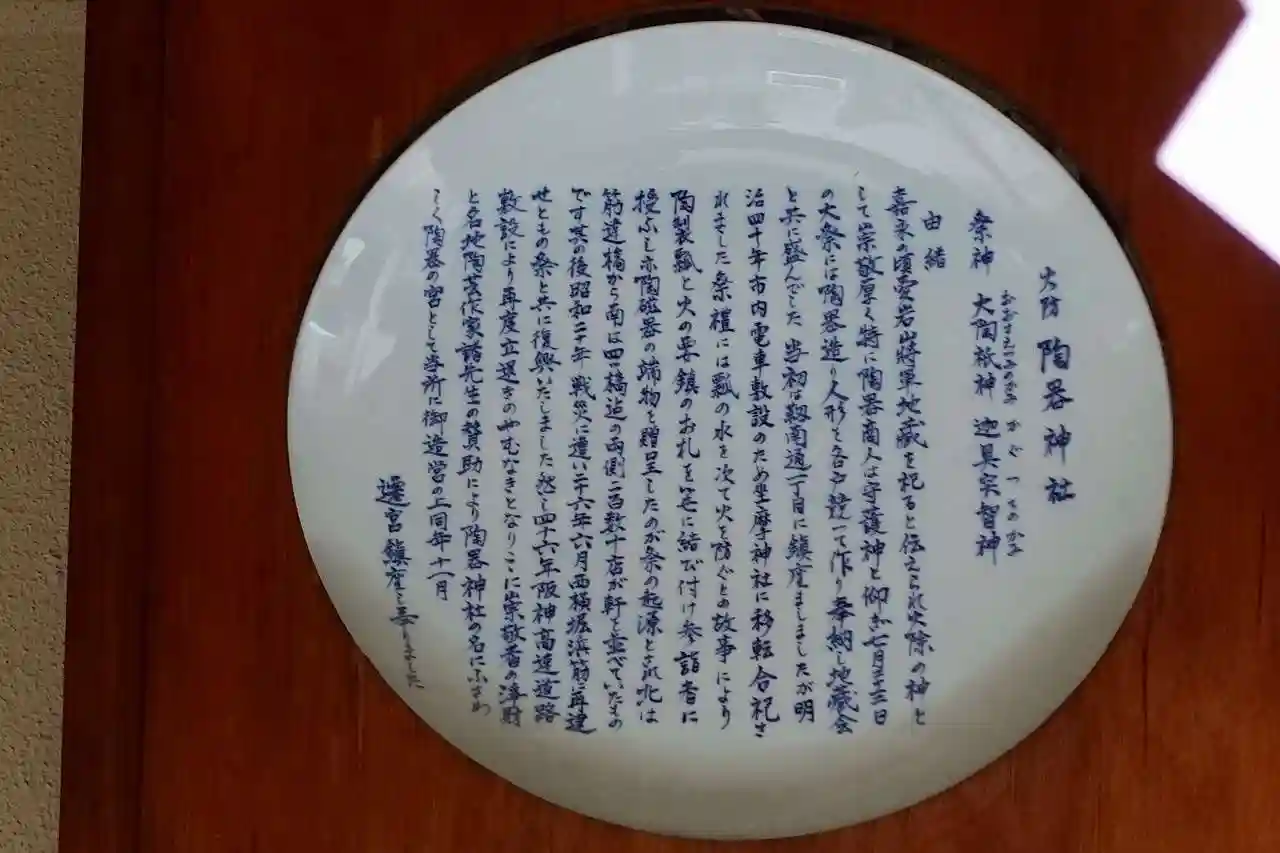 火防 陶器神社
おおすえつみのかみ かぐつちのかみ
祭神 大陶祇神 迦具突智神
由緒
嘉永の頃愛宕山将軍地蔵を祀ると伝えられ火除の神と
して崇敬厚く特に陶器商人は守護神と仰ぎ七月二十三日
の大祭には陶器造り人形を各戸競って作り奉納し地蔵会
と共に盛んでした 当初は靱南通一丁目に鎮座ましましたが明
治四十年市内電車敷設のため坐摩神社に移転合祀さ
れました祭礼には瓢の水を以て火を防ぐとの故事により
陶製瓢と火の要鎮のお札を笹に結び付け参詣者に
授ふし亦陶磁器の端物を贈呈したのが祭の起源とされ北は
筋違橋から南は四ツ橋迄の両側二百数十店が軒を並べていたもの
です其の後昭和二十年戦災に遭い二十六年六月西横堀浜筋に再建
せともの祭と共に復興いたしました然し四十六年阪神高速道路
敷設により再度立退きのやむなきとなりここに崇敬者の浄財
と各地陶芸作家諸先生の賛助により陶器神社の名にふさわ
しく陶器の宮として当所に御造営の上同年十一月
遷宮鎮座